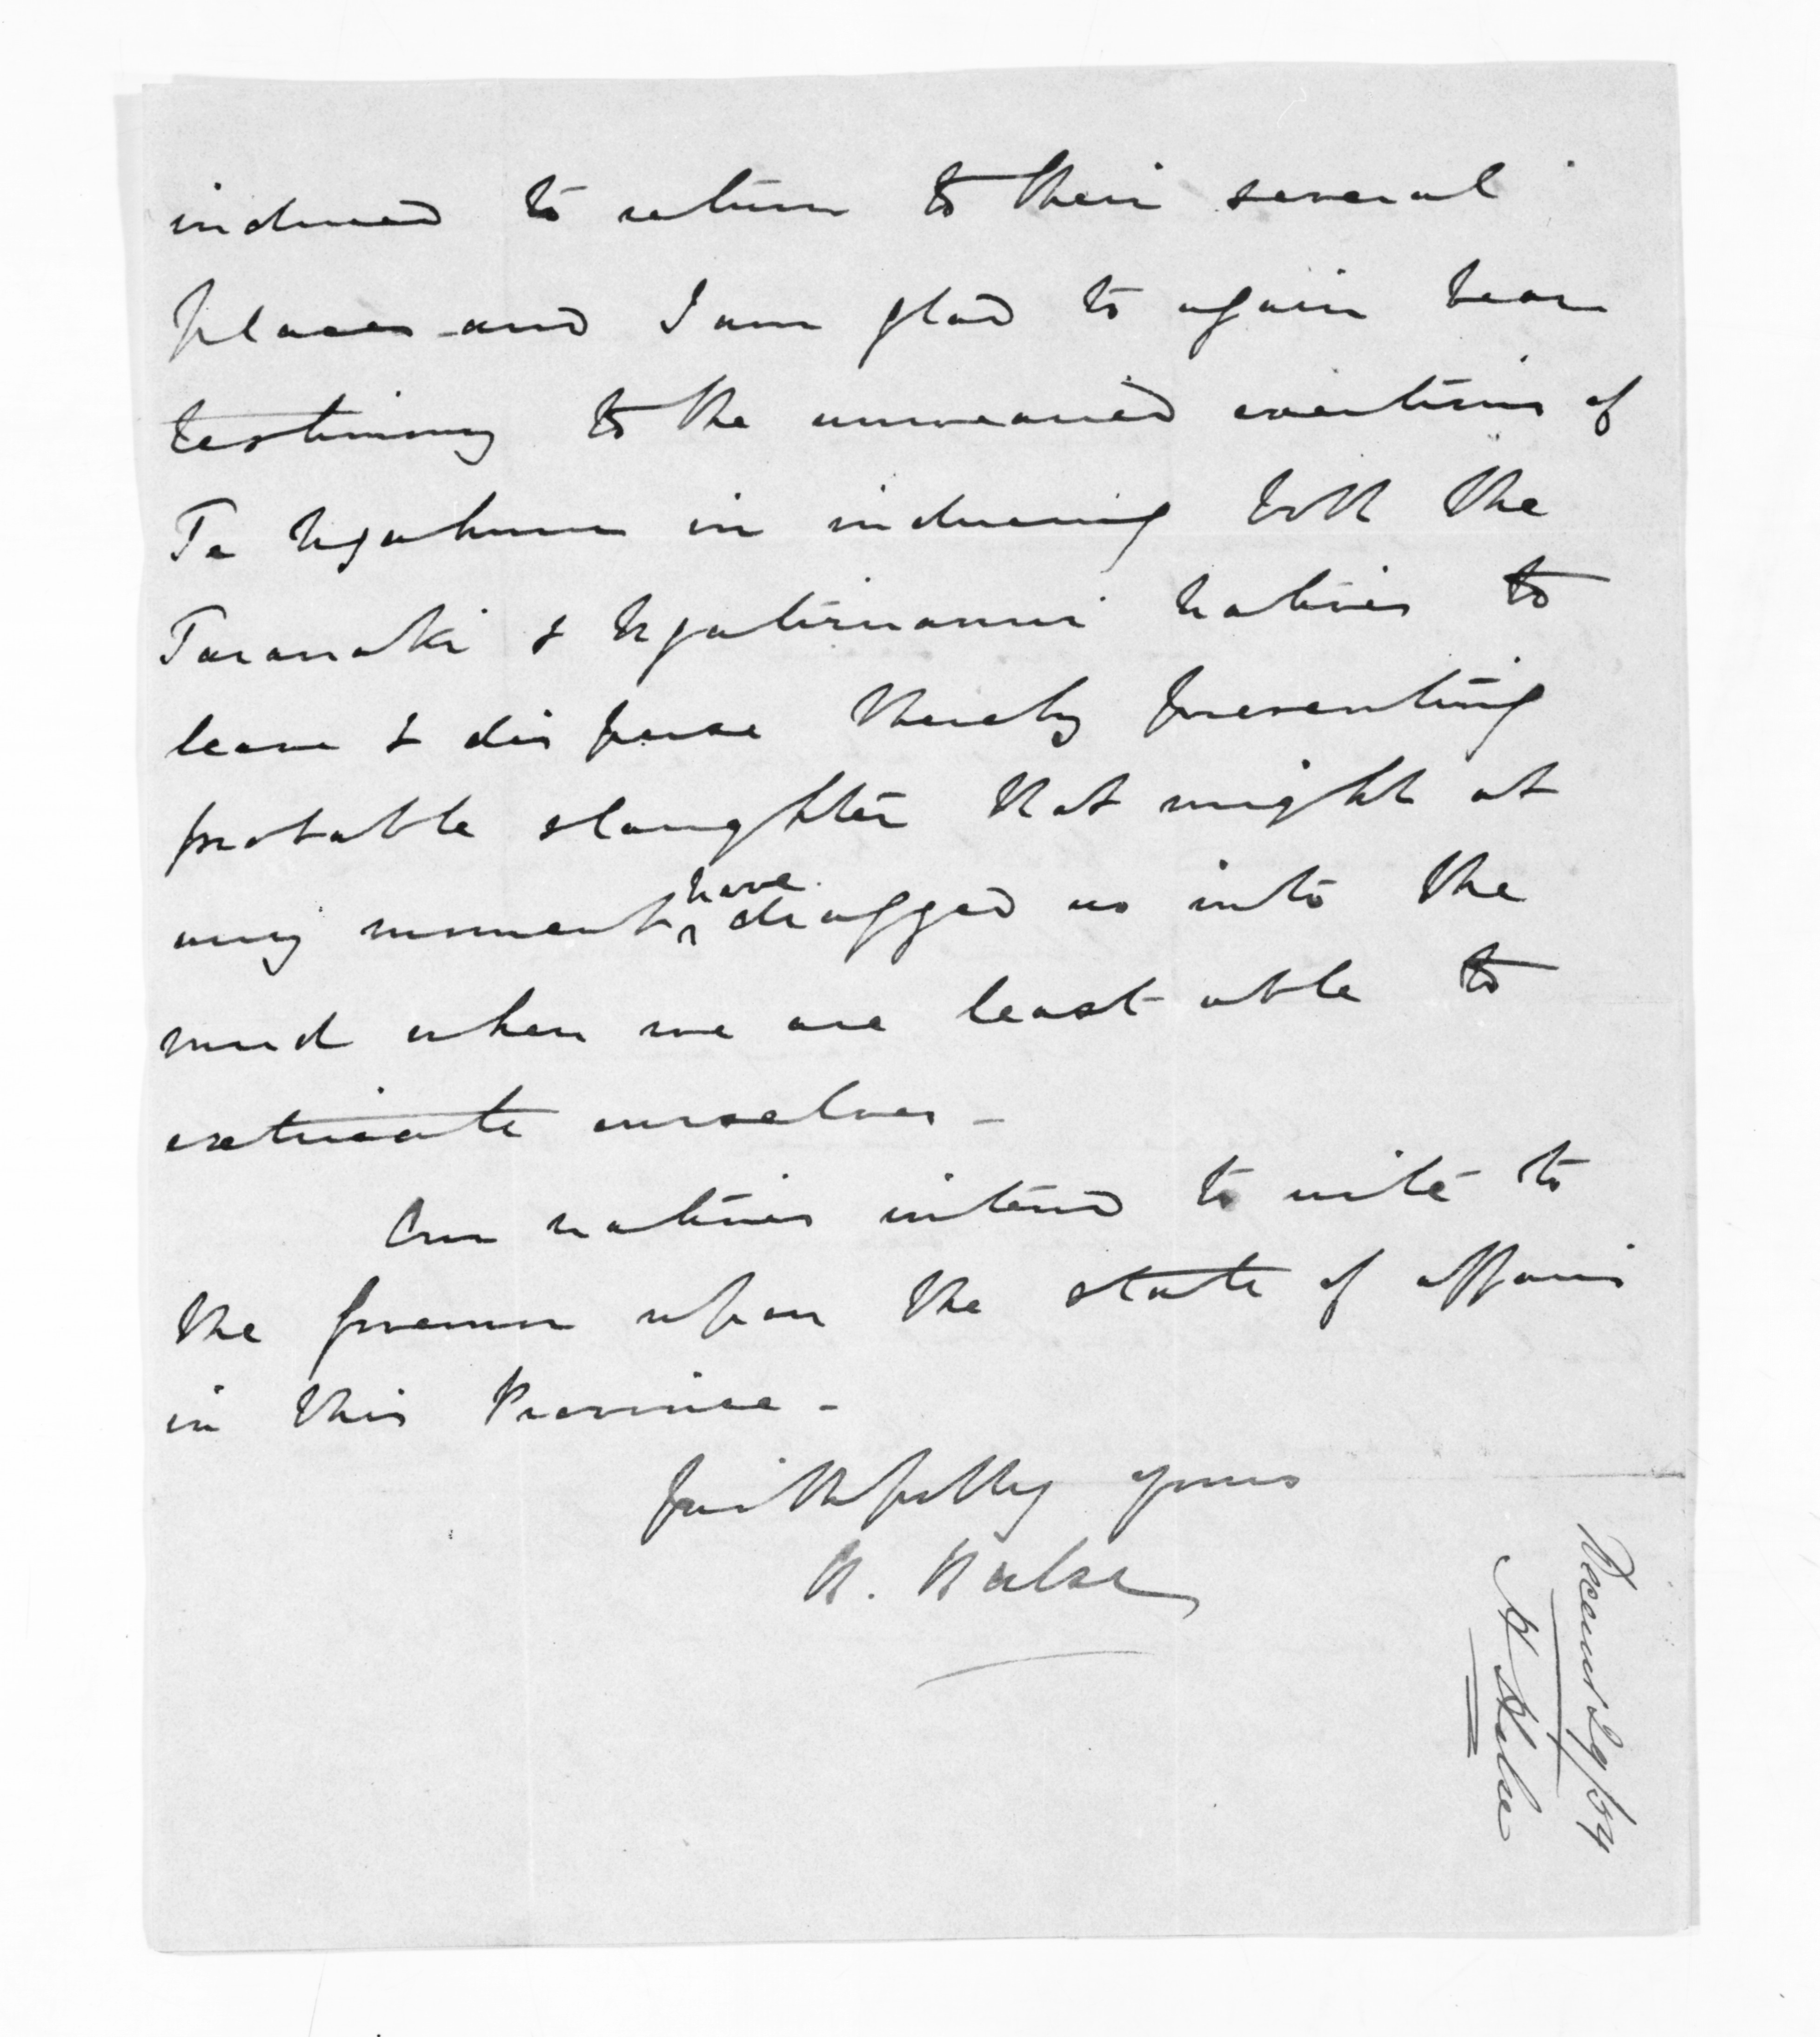 induced to return to their several
places and I am glad to again bear
testimony to the unwearied exertions of
Te Ngahuru in inducing both the
Taranaki & Ngatiruanui natives to
leave & disperse thereby preventing
probable slaughter that might at
any moment have dragged us into the
mud when we are least able to
extricate ourselves -
Our natives intend to write to
the Governor upon the state of affairs
in this Province -
Faithfully yours
H. Halse
December 29/54
H Halse